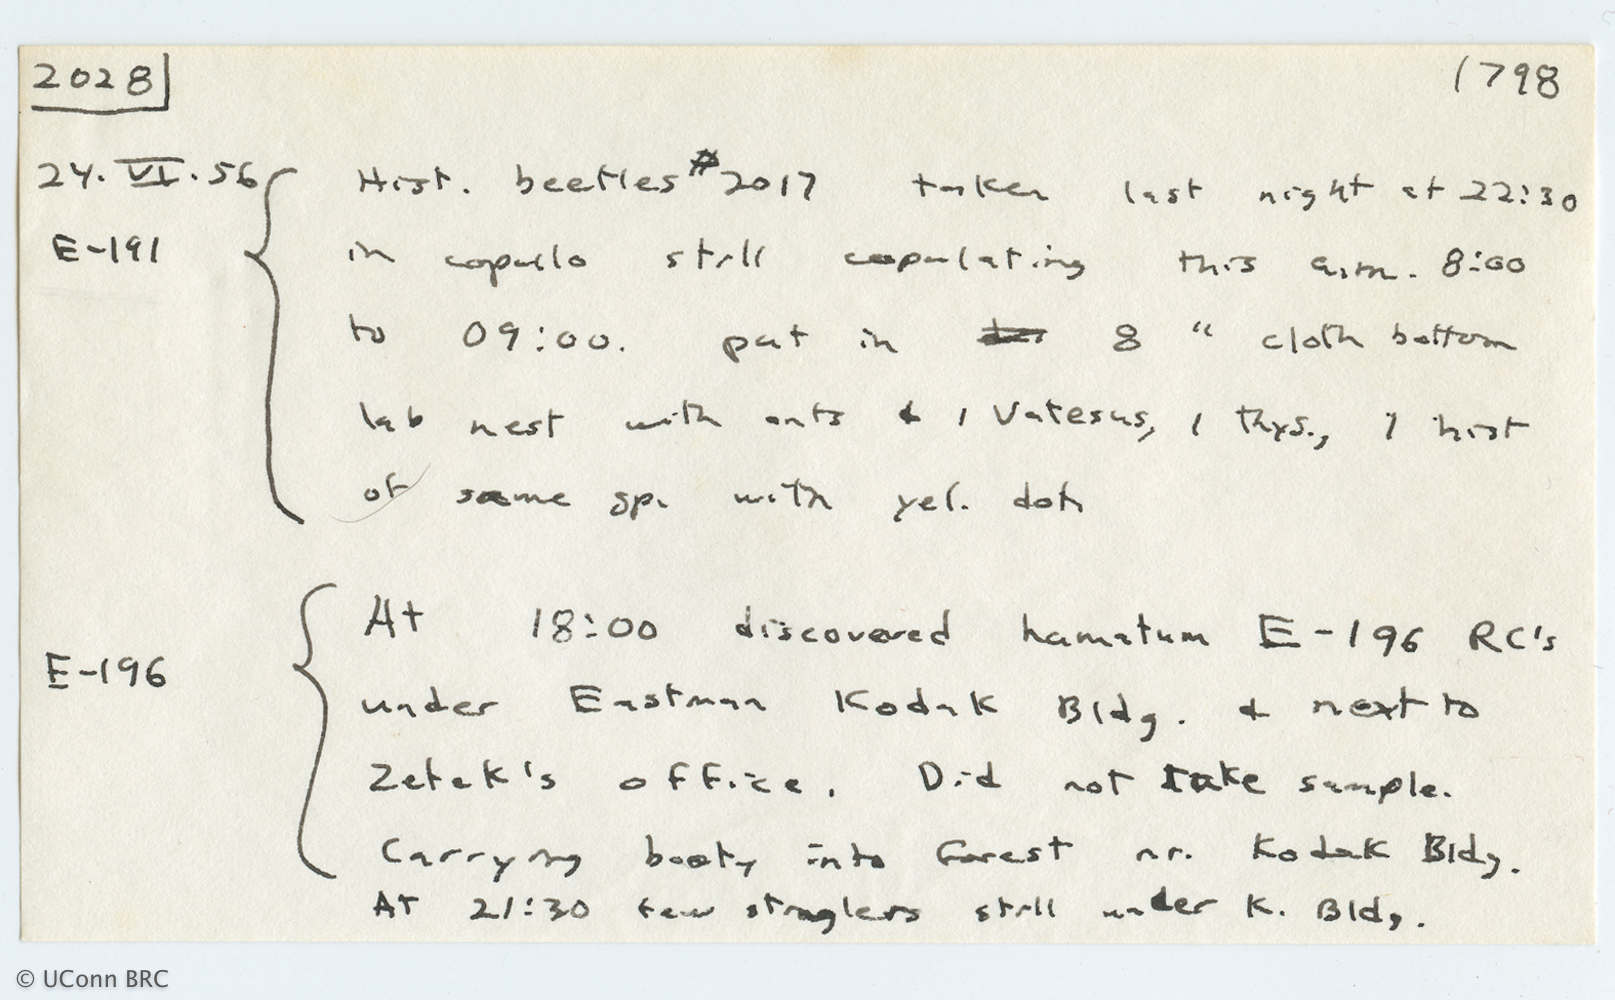 2028 1798
24.VI.56 Hist. beetles #2017 taken last night at 22:30
E-191 in copulo still copulating this a.m. 8:00
to 09:00. put in 8 " cloth bottom
lab nest with ants & 1 Vatesus, 1 thys., 1 hist
of same sp. with yel. dot
At 18:00 discovered hamatum E-196 RC's
E-196 under Eastman Kodak Bldg. & next to
Zetek's office. Did not take sample.
Carrying booty into forest nr. Kodak Bldg.
At 21:30 few straglers still under K. Bldg.
© UConn BRC